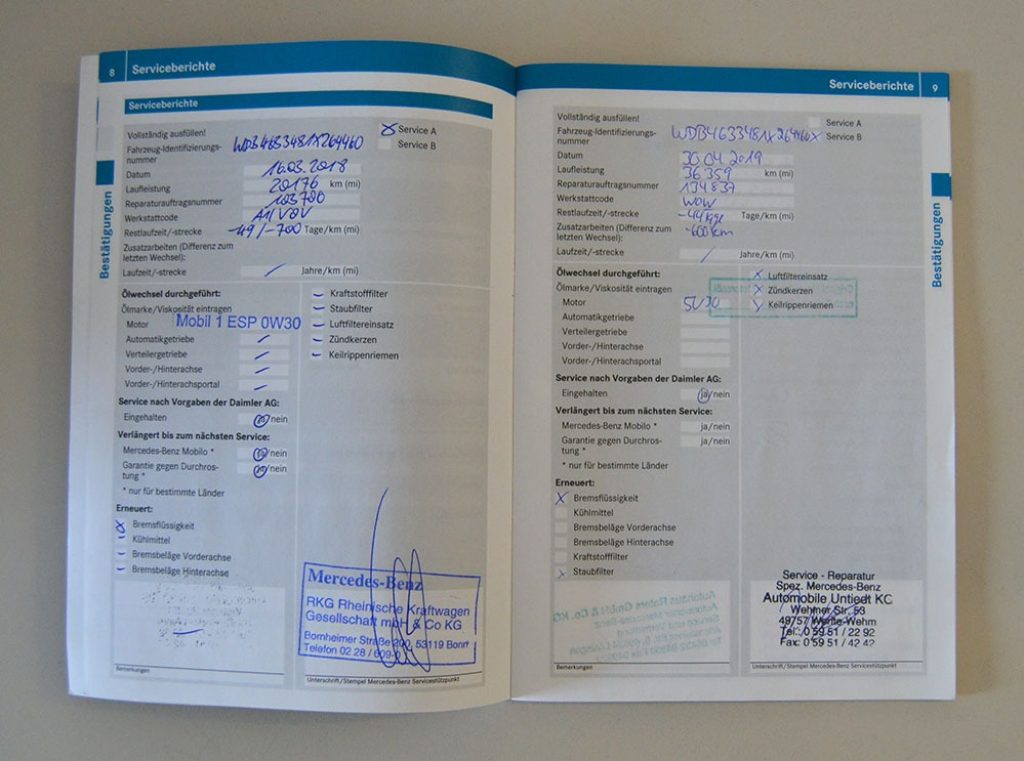 8 Serviceberichte
Serviceberichte
Vollständig ausfüllen!
X Service A
Service B
Fahrzeug-Identifizierungs-
nummer
WDB4633481X264460
Datum 16.03.2018
Laufleistung 20176 km (mi)
Reparaturauftragsnummer 103700
Werkstattcode
Restlaufzeit/-strecke -49/-700 Tage/km (mi)
Zusatzarbeiten (Differenz zum
letzten Wechsel):
Laufzeit/-strecke / Jahre/km (mi)
Bestätigungen
Ölwechsel durchgeführt:
Ölmarke/Viskosität eintragen
Motor Mobil 1 ESP 0W30
Automatikgetriebe
Verteilergetriebe
Vorder-/Hinterachse
Vorder-/Hinterachsportal
Kraftstofffilter
Staubfilter
Luftfiltereinsatz
Zündkerzen
Keilrippenriemen
Service nach Vorgaben der Daimler AG:
Eingehalten ja/nein
Verlängert bis zum nächsten Service:
Mercedes-Benz Mobilo * ja/nein
Garantie gegen Durchros-
tung * ja/nein
* nur für bestimmte Länder
Erneuert:
X Bremsflüssigkeit
Kühlmittel
Bremsbeläge Vorderachse
Bremsbeläge Hinterachse
Bemerkungen
Mercedes-Benz
RKG Rheinische Kraftwagen
Gesellschaft mbH & Co KG
Bornheimer Straße 200, 53119 Bonn
Telefon 02 28 / 609-0
Unterschrift/Stempel Mercedes-Benz Servicestützpunkt
Serviceberichte 9
Vollständig ausfüllen!
Service A
X Service B
Fahrzeug-Identifizierungs-
nummer
WDB4633481X264460
Datum 30.04.2019
Laufleistung 36359 km (mi)
Reparaturauftragsnummer 134837
Werkstattcode
Restlaufzeit/-strecke -44 Tage/km (mi)
Zusatzarbeiten (Differenz zum
letzten Wechsel):
-600 km
Laufzeit/-strecke / Jahre/km (mi)
Bestätigungen
Ölwechsel durchgeführt:
Ölmarke/Viskosität eintragen
Motor 5W30
Automatikgetriebe
Verteilergetriebe
Vorder-/Hinterachse
Vorder-/Hinterachsportal
X Luftfiltereinsatz
X Zündkerzen
X Keilrippenriemen
Service nach Vorgaben der Daimler AG:
Eingehalten ja/nein
Verlängert bis zum nächsten Service:
Mercedes-Benz Mobilo * ja/nein
Garantie gegen Durchros-
tung * ja/nein
* nur für bestimmte Länder
Erneuert:
X Bremsflüssigkeit
Kühlmittel
Bremsbeläge Vorderachse
Bremsbeläge Hinterachse
Kraftstofffilter
X Staubfilter
Bemerkungen
Service - Reparatur
Spez. Mercedes-Benz
Automobile Untiedt KC
Wehmer Str. 53
49757 Werlte-Wehm
Tel: 0 59 51 / 22 92
Fax: 0 59 51 / 42 42
Unterschrift/Stempel Mercedes-Benz Servicestützpunkt